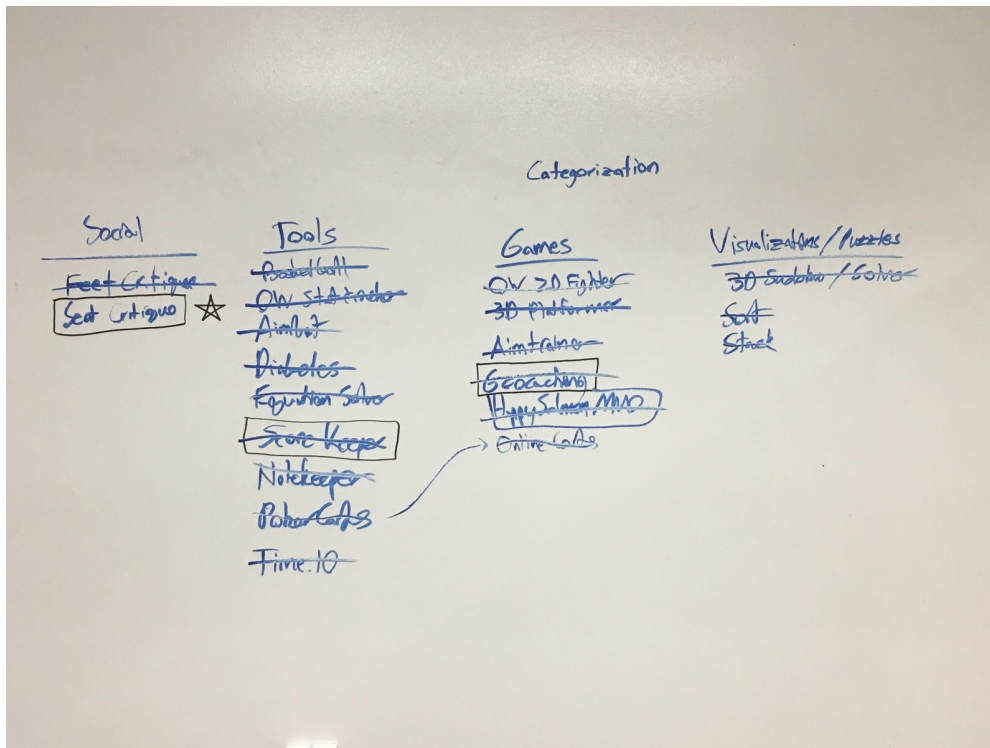 Categorization
Social
Feet Critique
Seat Critique
Tools
Basketball
OW Stat tracker
Aimbot
Diabetes
Equation Solver
Score Keeper
Notekeeper
Poker Cards
Time.IO
Games
OW 2D Fighter
3D Platformer
Aimtrainer
Geocaching
Happy Salmon, MMO
Online Cards
Visualizations/Puzzles
3D Sudoku/Solver
Sort
Stack